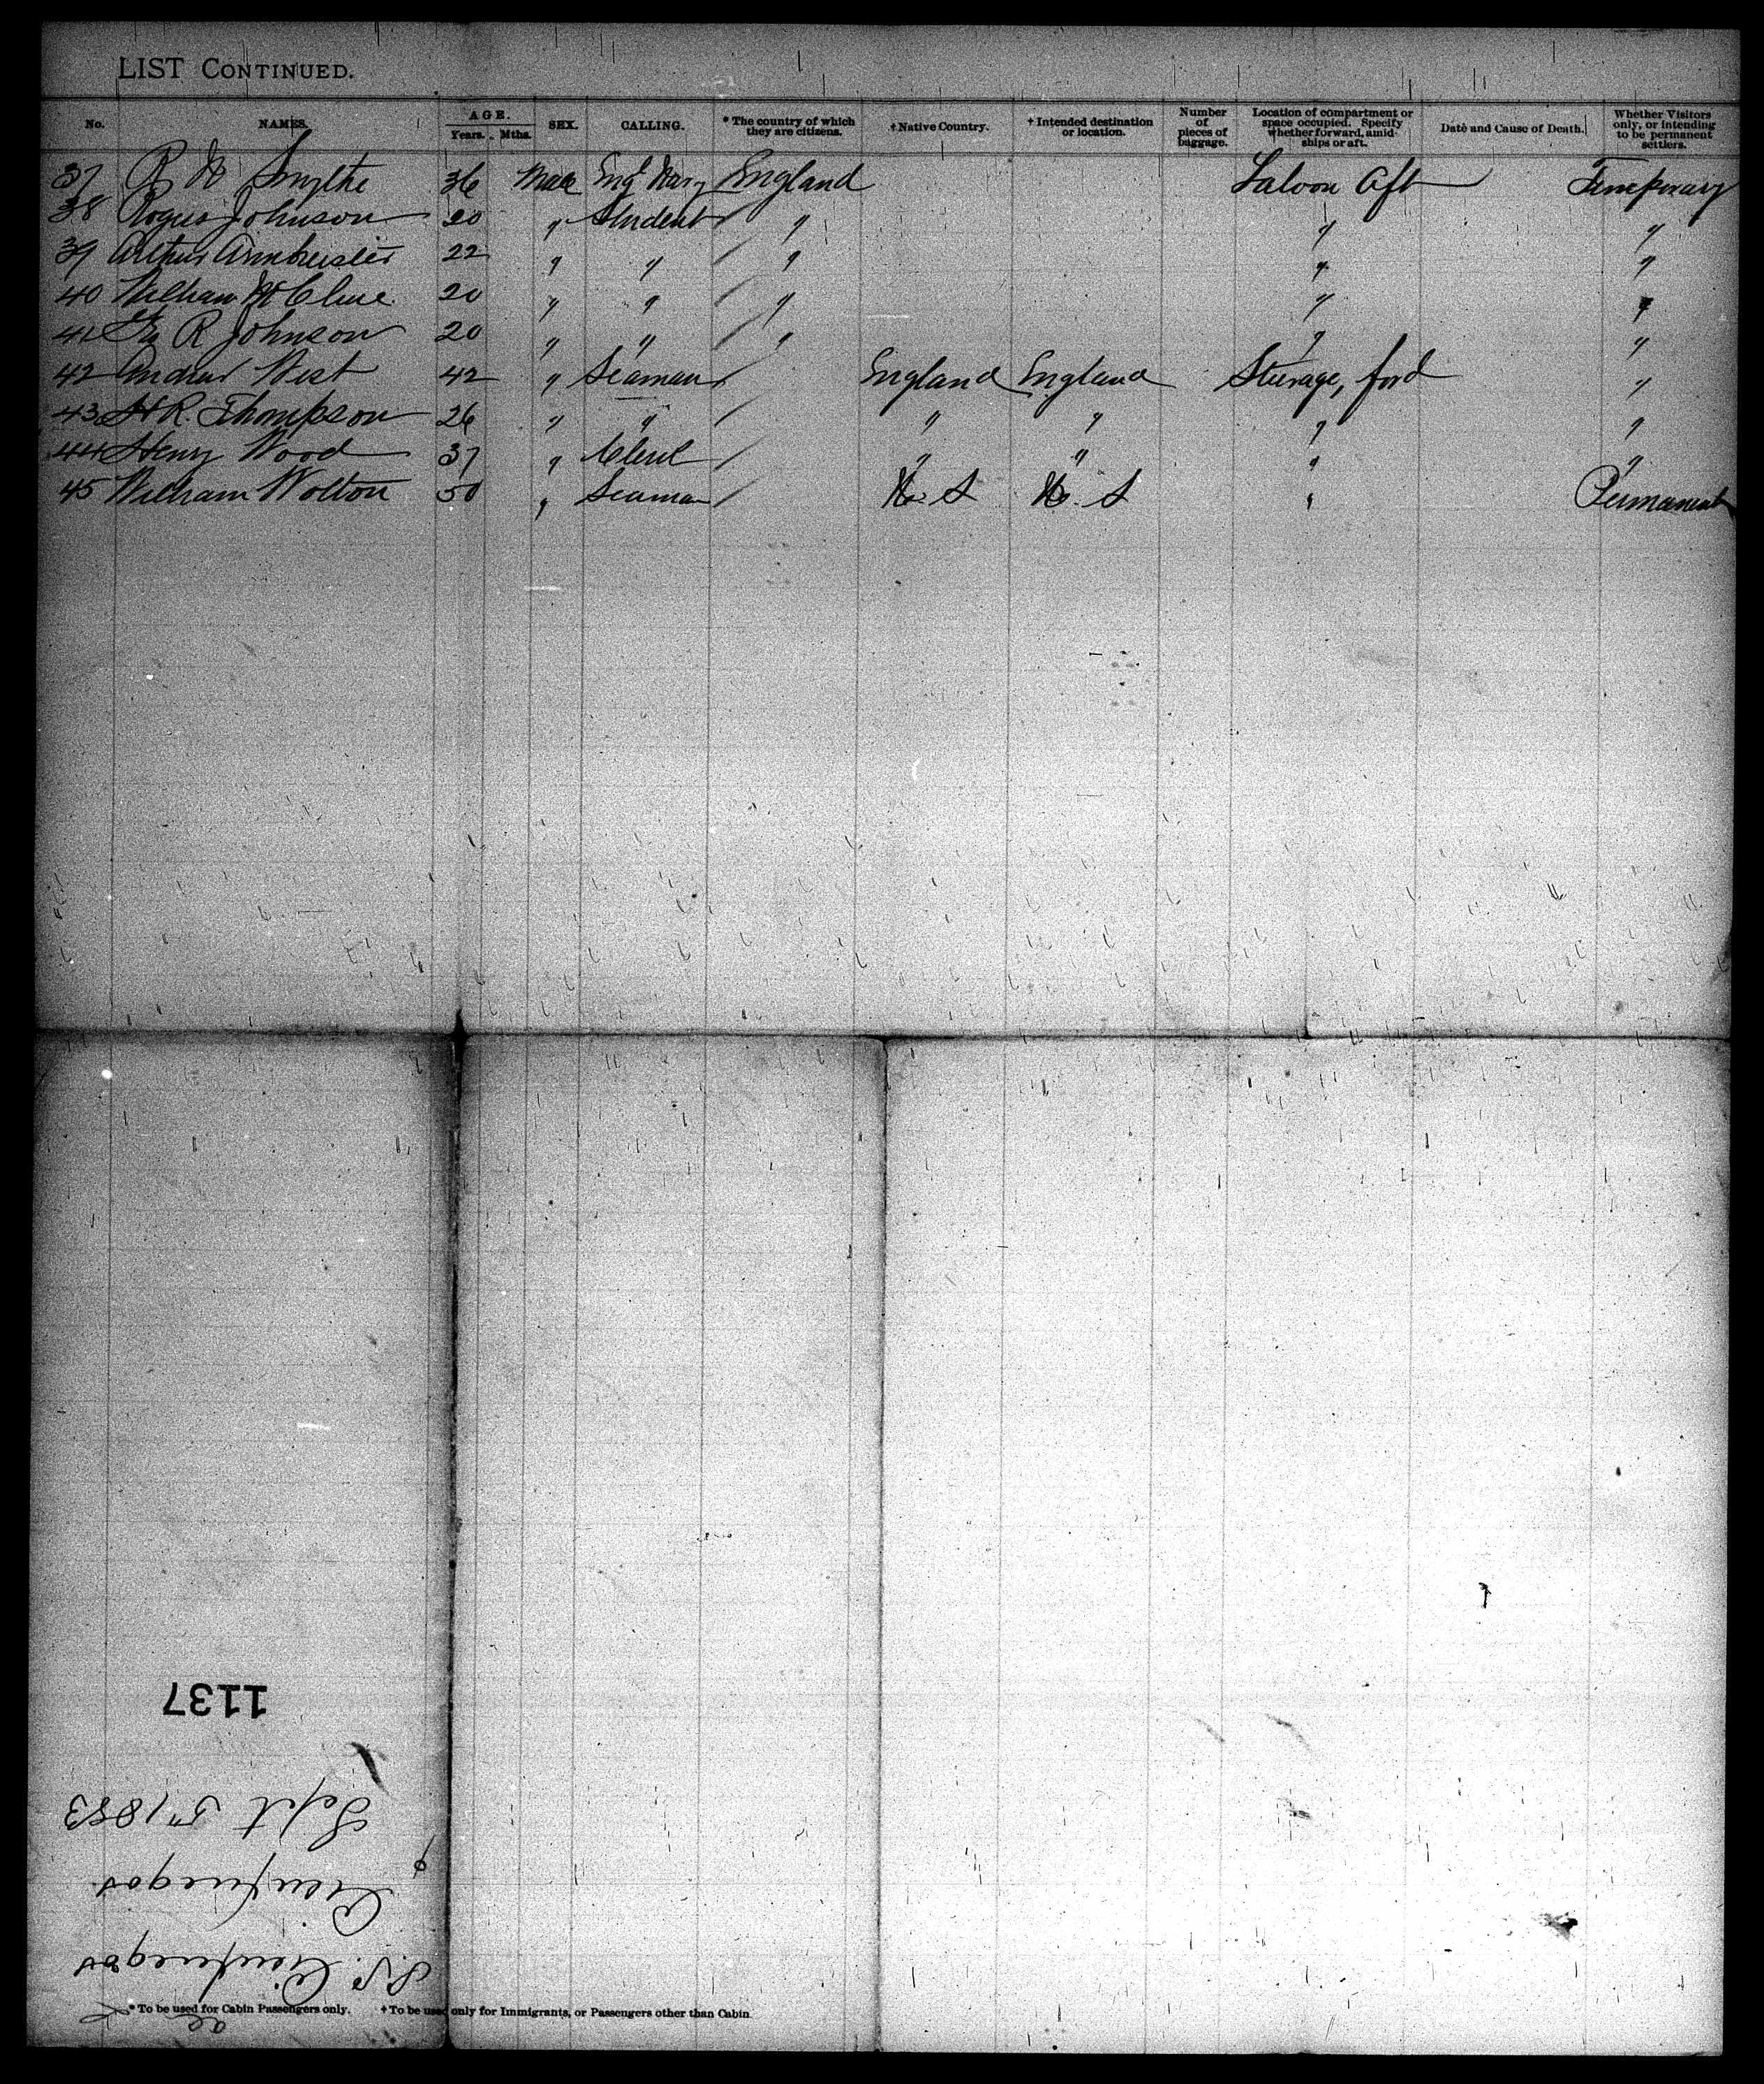 LIST CONTINUED.
No. NAMES. AGE. Years. Mths. SEX. CALLING. * The country of which they are citizens. † Native Country. † Intended destination or location. Number of pieces of baggage. Location of compartment or space occupied. Specify whether forward, amidships or aft. Date and Cause of Death. Whether Visitors only, or intending to be permanent settlers.
37 R W Smythe 36 Male Eng Navy England Saloon Aft Temporary
38 Johnson 20 " Student " " "
39 Arthur 22 " " " " "
40 William 20 " " " " "
41 R Johnson 20 " " " " "
42 Andrew West 42 " Seaman England England Sturage, ford "
43 H R. Thompson 26 " " " " " "
44 Henry Wood 37 " Clerk " " " "
45 William Wolton 50 " Seaman U. S U. S " Permanent
1137
Sept 5" 1883
Cienfuegos
SS. Cienfuegos
* To be used for Cabin Passengers only. † To be used only for Immigrants, or Passengers other than Cabin